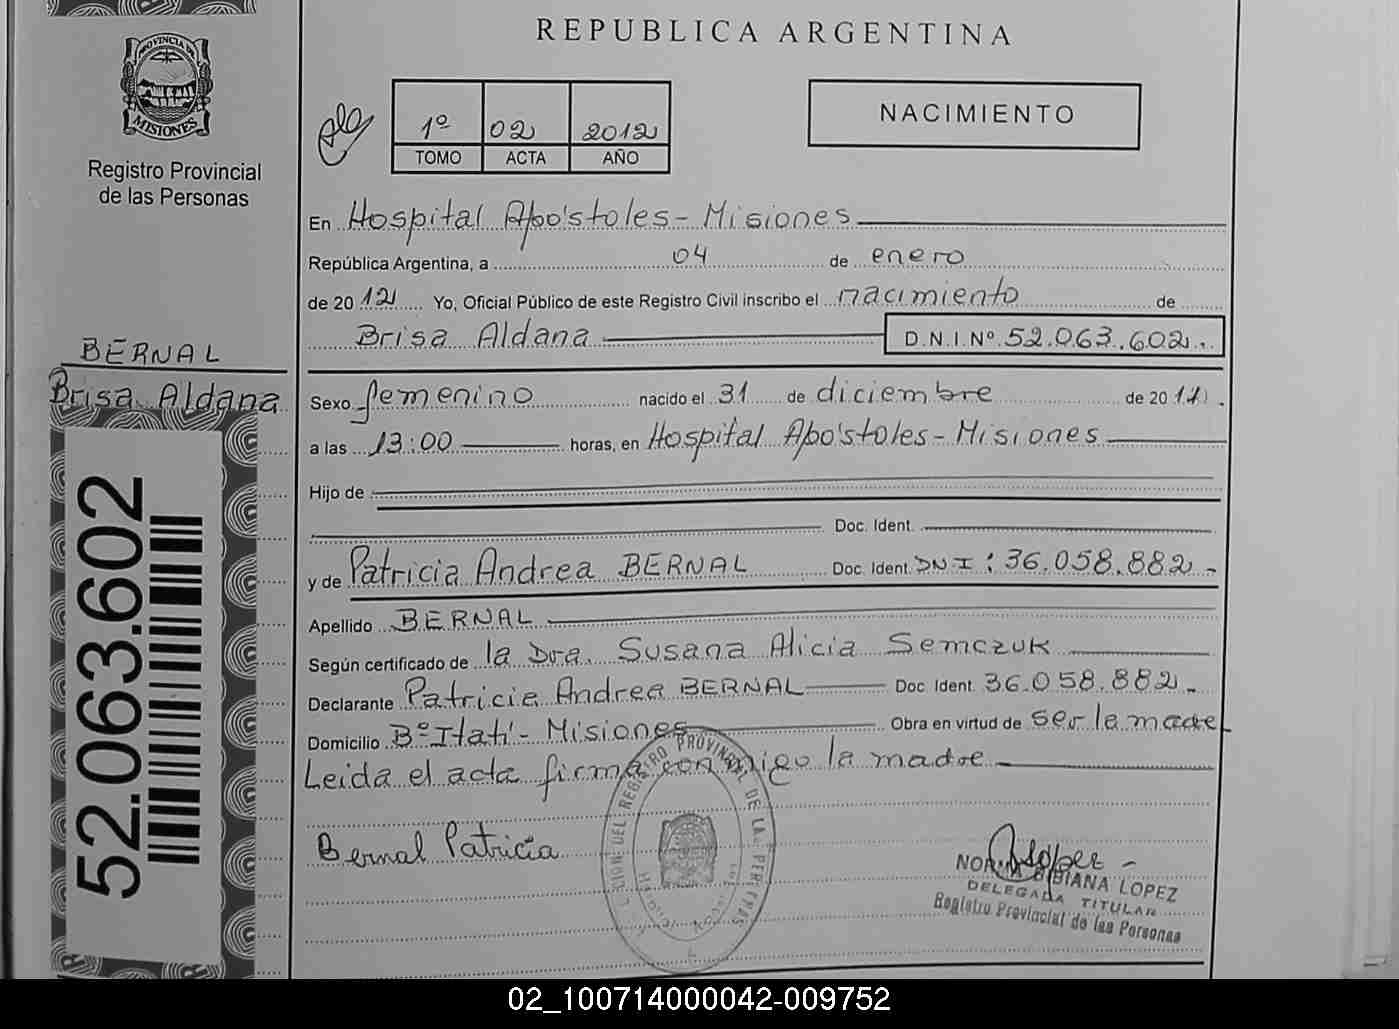 REPUBLICA ARGENTINA
PROVINCIA DE
MISIONES
Registro Provincial
de las Personas
1º 02 2012
TOMO ACTA AÑO
NACIMIENTO
En Hospital Apóstoles - Misiones
República Argentina, a 04 de enero
de 2012 Yo, Oficial Público de este Registro Civil inscribo el nacimiento de
Brisa Aldana D.N.I.Nº 52.063.602
BERNAL
Brisa Aldana
52.063.602
Sexo femenino nacido el 31 de diciembre de 2011.
a las 13:00 horas, en Hospital Apóstoles - Misiones
Hijo de
Doc. Ident.
y de Patricia Andrea BERNAL Doc. Ident. DNI: 36.058.882 -
Apellido BERNAL
Según certificado de la Dra. Susana Alicia Semczuk
Declarante Patricia Andrea BERNAL Doc. Ident. 36.058.882 -
Domicilio Bº Itatí - Misiones Obra en virtud de ser la madre
Leida el acta firma conmigo la madre
Bernal Patricia
DEL REGISTRO PROVINCIAL DE LAS PERSONAS
NORMA BIBIANA LOPEZ
DELEGADA TITULAR
Registro Provincial de las Personas
02_100714000042-009752